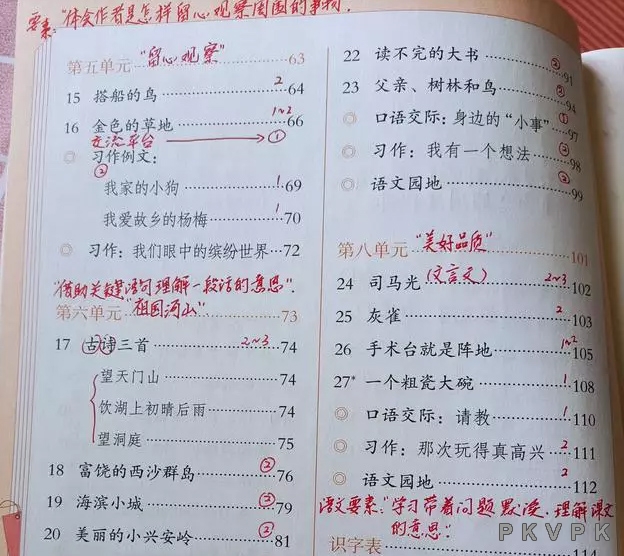 要素:“体会作者是怎样留心观察周围的事物.
第五单元 “留心观察” 63
15 搭船的鸟 2 64
16 金色的草地 1~2 66
交流平台 ①
◎ 习作例文:
②
我家的小狗 1 69
我爱故乡的杨梅 1 70
◎ 习作:我们眼中的缤纷世界…72
“借助关键语句理解一段话的意思”.
第六单元 “祖国河山” 73
17 古诗三首 2~3 74
望天门山 74
饮湖上初晴后雨 74
望洞庭 75
18 富饶的西沙群岛 ② 76
19 海滨小城 ② 79
20 美丽的小兴安岭 ② 81
22 读不完的大书 ② 91
23 父亲、树林和鸟 ② 94
◎ 口语交际:身边的“小事” ① 97
◎ 习作:我有一个想法 ② 98
◎ 语文园地 ② 99
第八单元 “美好品质” 101
24 司马光 (文言文) 2~3 102
25 灰雀 2 103
26 手术台就是阵地 1~2 105
27* 一个粗瓷大碗 1 108
◎ 口语交际:请教 1 110
◎ 习作:那次玩得真高兴 2 111
◎ 语文园地 2 112
语文要素:“学习带着问题默读,理解课文
的意思”.
识字表 114
PKVPK